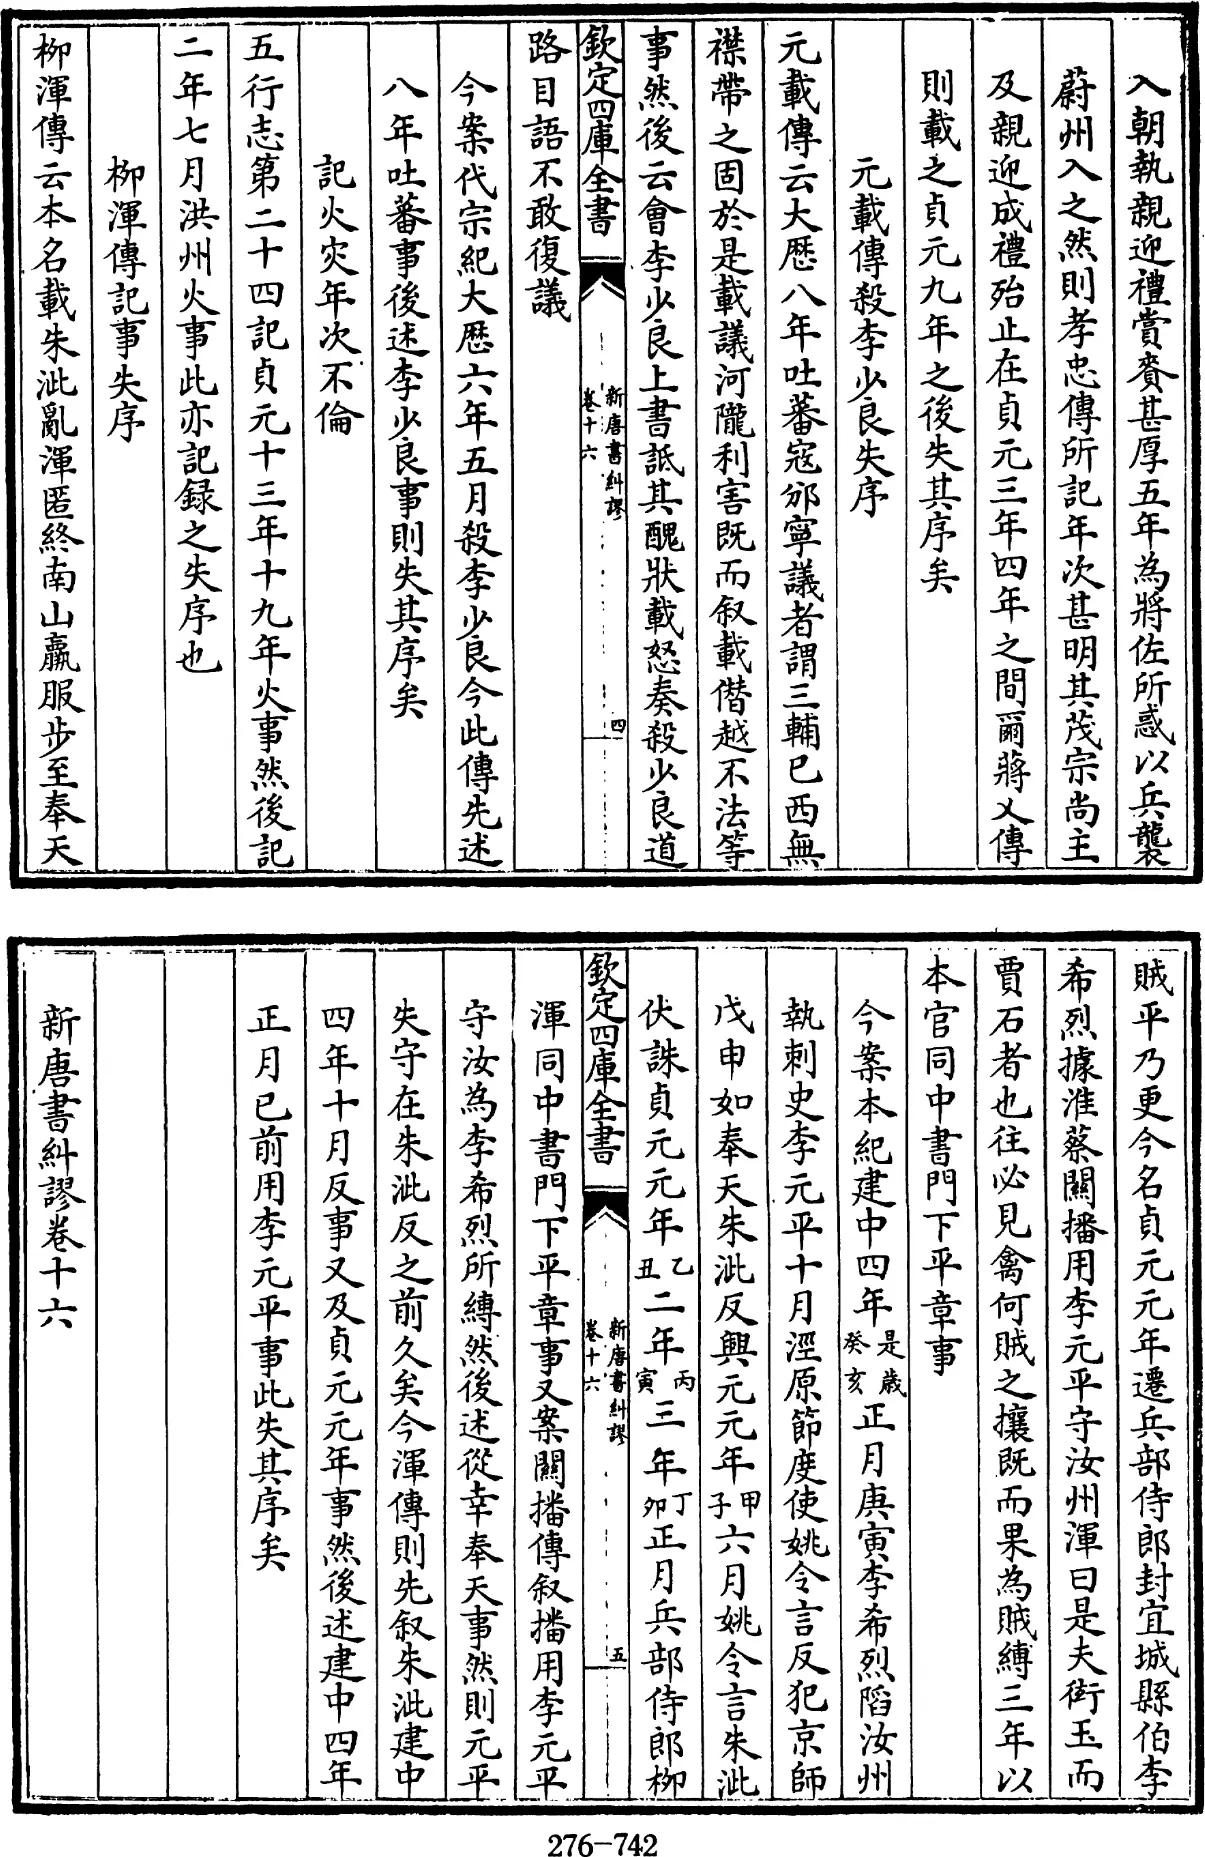 入朝執親迎禮賞賚甚厚五年為將佐所惑以兵襲
蔚州入之然則孝忠傳所記年次甚明其茂宗尚主
及親迎成禮殆止在貞元三年四年之間爾蔣乂傳
則載之貞元九年之後失其序矣
元載傳殺李少良失序
元載傳云大歷八年吐蕃寇邠寧議者謂三輔已西無
襟帶之固於是載議河隴利害既而叙載僣越不法等
事然後云會李少良上書詆其醜狀載怒奏殺少良道
欽定四庫全書
新唐書糾謬
卷十六
四
路目語不敢復議
今案代宗紀大歷六年五月殺李少良今此傳先述
八年吐蕃事後述李少良事則失其序矣
記火灾年次不倫
五行志第二十四記貞元十三年十九年火事然後記
二年七月洪州火事此亦記録之失序也
柳渾傳記事失序
柳渾傳云本名載朱泚亂渾匿終南山羸服步至奉天
賊平乃更今名貞元元年遷兵部侍郎封宜城縣伯李
希烈據淮蔡關播用李元平守汝州渾曰是夫衒玉而
賈石者也往必見禽何賊之攘既而果為賊縛三年以
本官同中書門下平章事
今案本紀建中四年是歲癸亥正月庚寅李希烈䧟汝州
執刺史李元平十月涇原節度使姚令言反犯京師
戊申如奉天朱泚反興元元年甲子六月姚令言朱泚
伏誅貞元元年乙丑二年丙寅三年丁卯正月兵部侍郎柳
欽定四庫全書
新唐書糾謬
卷十六
五
渾同中書門下平章事又案關播傳叙播用李元平
守汝為李希烈所縛然後述從幸奉天事然則元平
失守在朱泚反之前久矣今渾傳則先叙朱泚建中
四年十月反事又及貞元元年事然後述建中四年
正月已前用李元平事此失其序矣
新唐書糾謬卷十六
276-742